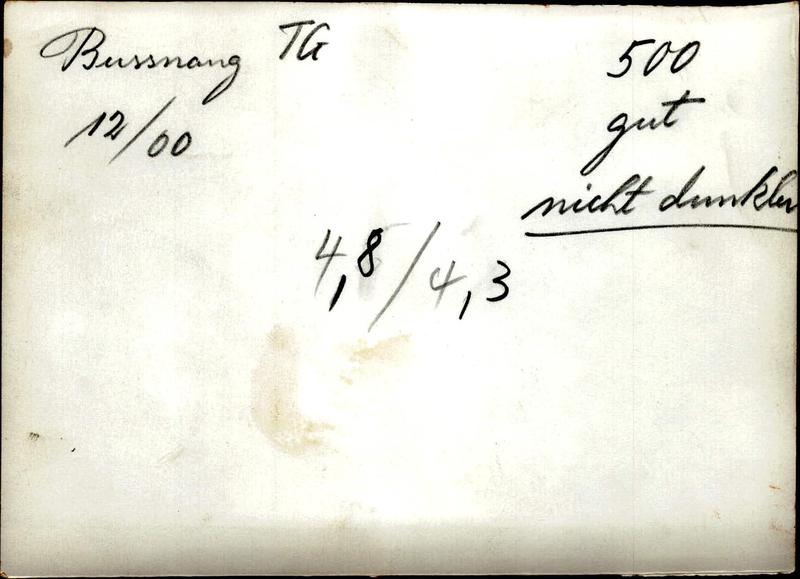 Bussnang TG
12/00
500
gut
nicht dunkler
4,8/4,3